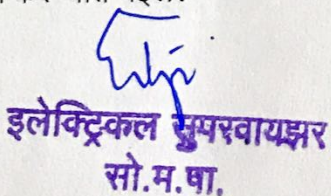 इलेक्ट्रिकल सुपरवायझर
सो.म.पा.